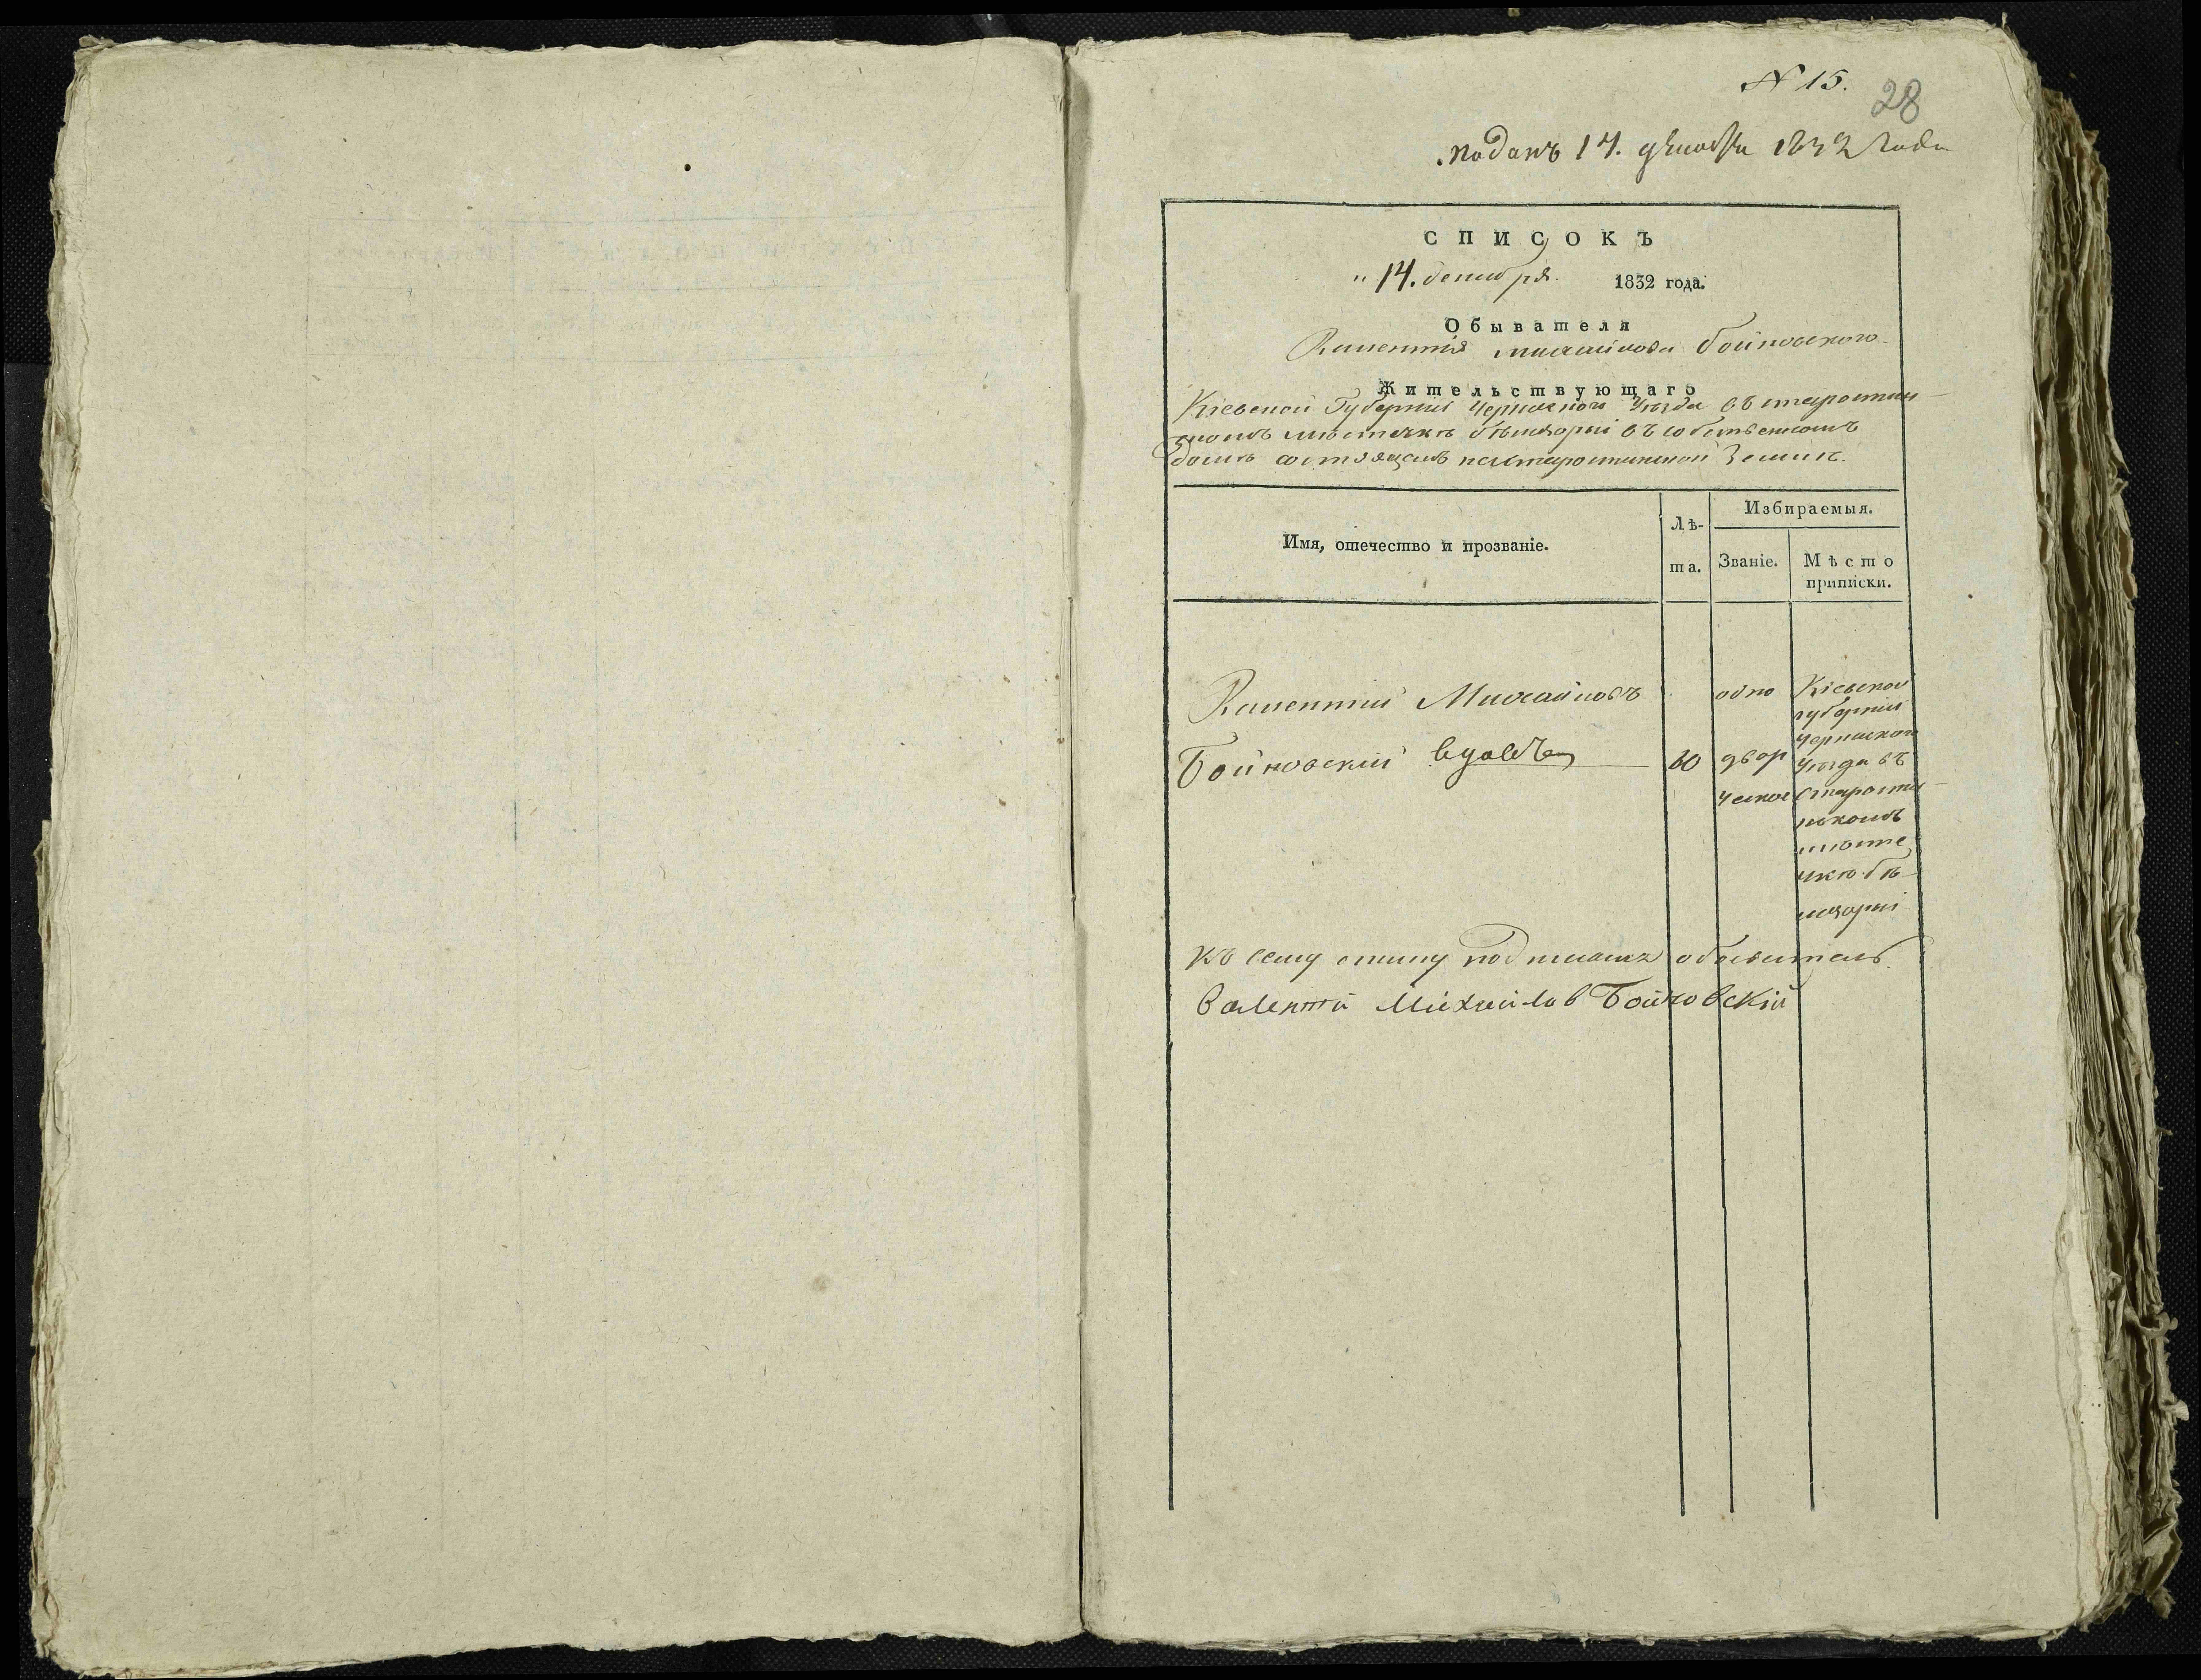 N 15.
28
Поданъ 14. декабря 1832 года
СПИСОКЪ
"14. декабря 1832 года.
Обывателя
Валентія Михайлова Бойновского
Жительствующаго
Кіевской Губерніи Черкаского Уѣзда въ старостин
скомъ мѣстечкѣ Бѣлозорьи въ собственномъ
домѣ состоящемъ на старостинской Землѣ.
Имя, отечество и прозваніе.
Лѣ-
та.
Избираемыя.
Званіе.
Мѣсто
приписки.
Валентій Михайловъ
Бойновскій вдовецъ
60
одно
двор
ческое
Кіевской
губерніи
Черкаского
Уѣзда въ
Старостин
скомъ
мѣсте
чкѣ Бѣ
лозорьи
Къ сему списку подписался обыватель
Валентій Михайлов Бойновскій